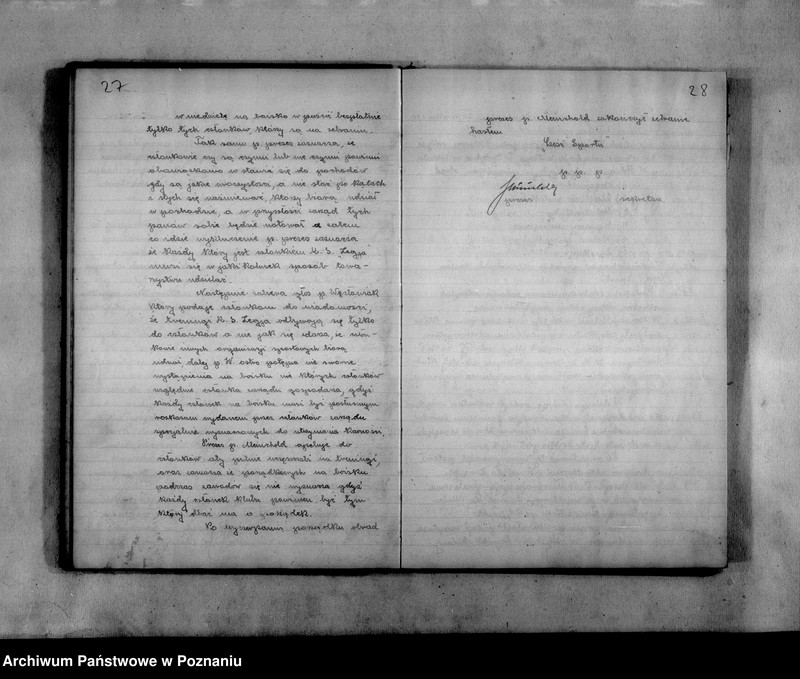 27
w niedzielę na boisko wpuścić bezpłatnie
tylko tych członków, którzy są na zebraniu.
Tak samo p. prezes zaznacza, że
członkowie czy są czynni lub nie czynni powinni
obowiązkowo stawić się do pochodów
gdy są jakie uroczystości, a nie stać po kątach
z tych się naśmiewać, którzy biorą udział
w pochodzie, a w przyszłości zarząd tych
panów sobie będzie notował a zatem
co idzie wykluczenie p. prezes zaznacza
że każdy który jest członkiem K. S. Legja
musi się w jaki kolwiek sposób towa-
rzystwu udzielać.
Następnie zabiera głos p. Węcławiak
który podaje członkom do wiadomości,
że treningi K. S. Legja odbywają się tylko
do członków a nie jak się zdarza, że człon-
kowie innych organizacji sportowych biorą
udział, dalej p. W. ostro potępia nie sworne
wystąpienia na boisku nie których członków
względnie członka zarządu gospodarza, gdyż
każdy członek na boisku musi być posłusznym
rozkazom wydanem przez członków zarządu
specjalnie wyznaczonych do utrzymania karności.
Prezes p. Meinhold apeluje do
członków aby pilnie uczęszczali na treningi,
oraz zaznacza że porządkowych na boisku
podczas zawodów się nie wyznacza gdyż
każdy członek klubu powinien być tym
który dbać ma o porządek.
Po wyczerpaniu porządku obrad
28
prezes p. Meinhold zakończył zebranie
hasłem
"Cześć Sportu"
p. p. p
Meinhold
prezes sekretarz
Archiwum Państwowe w Poznaniu